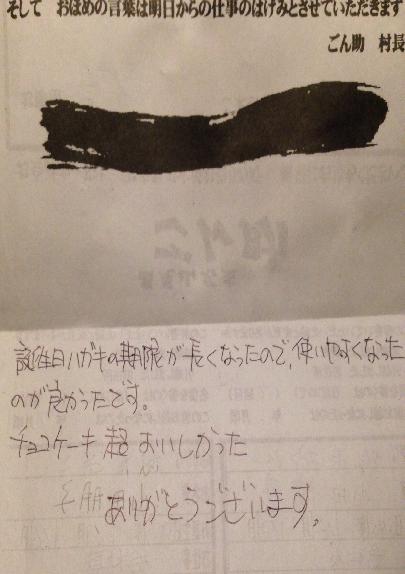 そして おほめの言葉は明日からの仕事のはげみとさせていただきます
ごん助 村長
誕生日ハガキの期限が長くなったので、使いやすくなった
のが良かったです。
チョコケーキ超おいしかった
ありがとうございます。